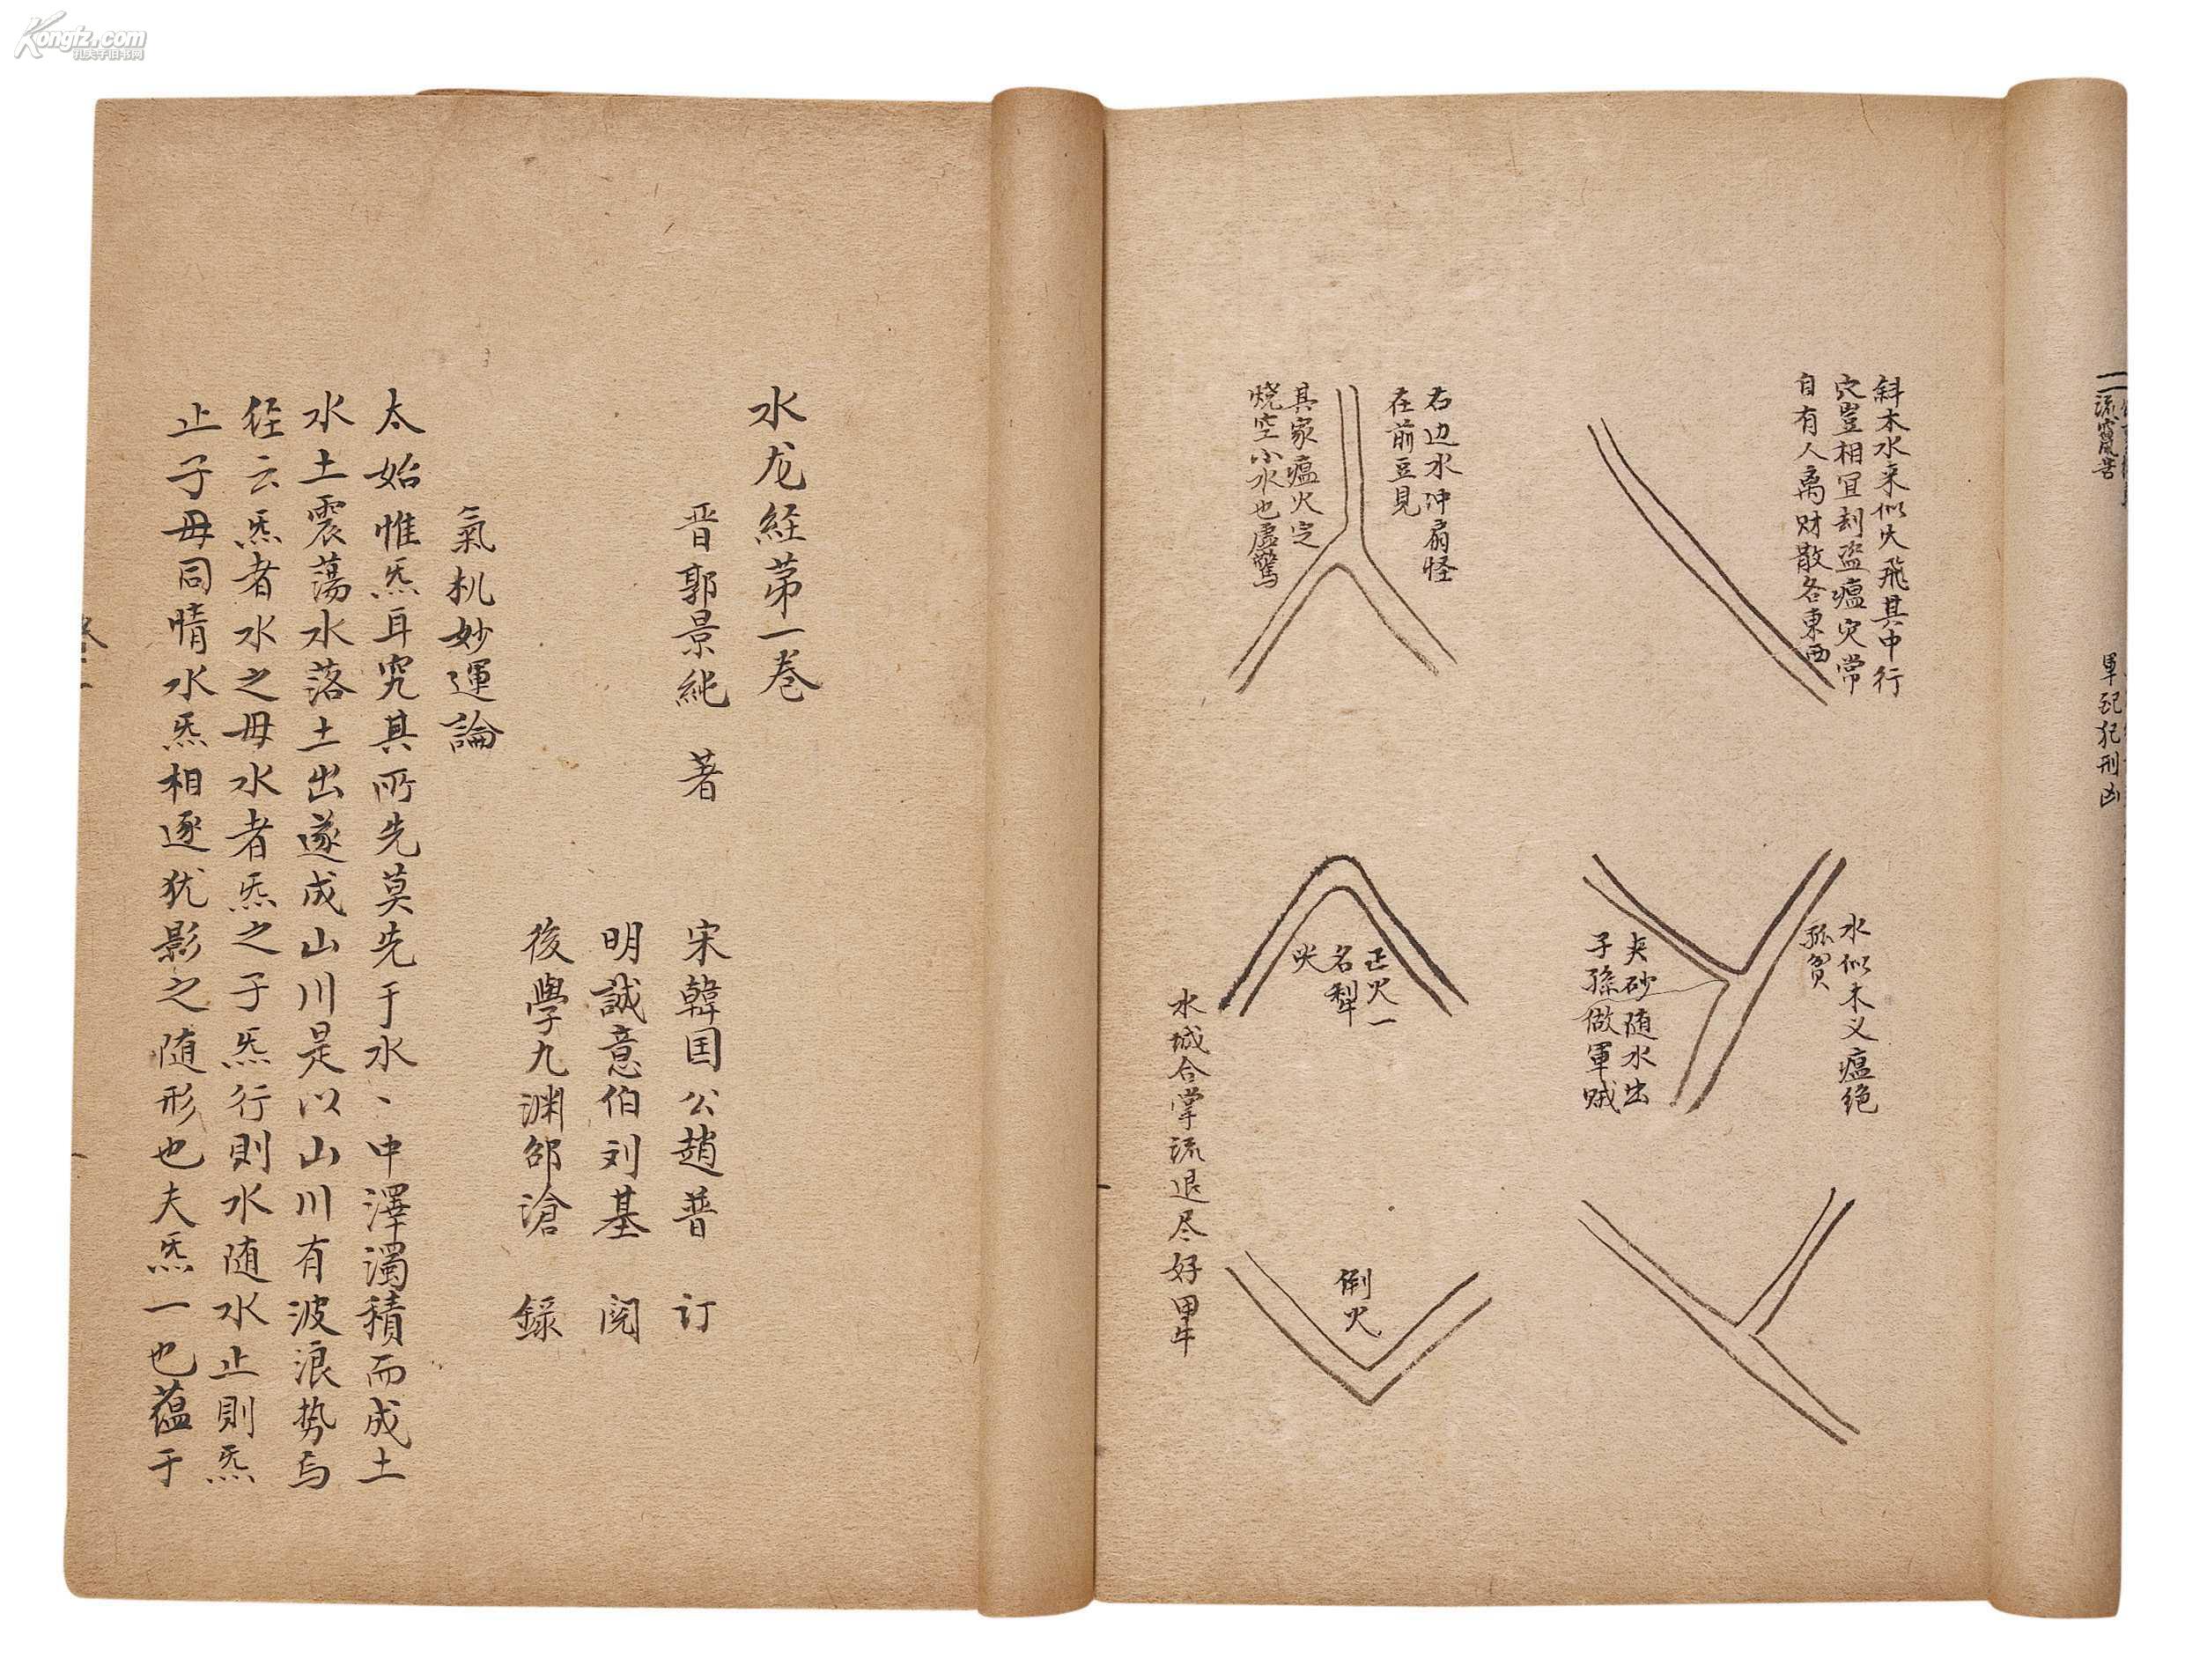 Kongfz.com
孔夫子旧书网
軍配犯刑凶
斜木水来似火飛其中行
穴豈相宜刼盗瘟灾常
自有人离财散各東西
水似木义瘟绝
孤貧
夹砂随水出
子孫做軍贼
右边水冲扇怪
在前豆見
其家瘟火定
烧空小水也虚驚
正火一
名犁
尖
倒火
水城合掌流退尽好田牛
水龙経苐一巻
晋郭景純 著
宋韓国公趙普 订
明誠意伯刘基 阅
後學九渊邵滄 録
氣机妙運論
太始惟炁耳究其所先莫先于水丶中澤濁積而成土
水土震蕩水落土出遂成山川是以山川有波浪势焉
経云炁者水之母水者炁之子炁行則水随水止則炁
止子母同情水炁相逐犹影之随形也夫炁一也蕴于